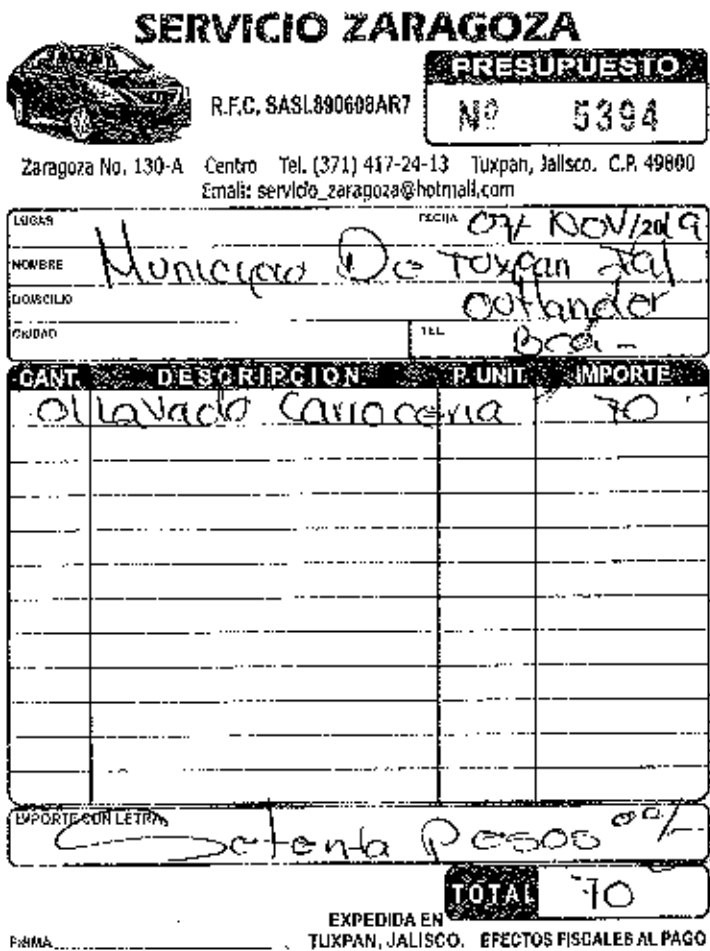 SERVICIO ZARAGOZA
PRESUPUESTO
R.F.C. SASL890608AR7
Nº 5394
Zaragoza No. 130-A Centro Tel. (371) 417-24-13 Tuxpan, Jalisco. C.P. 49800
Email: servicio_zaragoza@hotmail.com
LUGAR FECHA 07/ NOV/2019
NOMBRE Municipio De Tuxpan Jal
DOMICILIO Outlander
CIUDAD TEL.
CANT. DESCRIPCION P. UNIT. IMPORTE
01 Lavado Carroceria 70
IMPORTE CON LETRA
Setenta Pesos 00/
TOTAL 70
EXPEDIDA EN
FIRMA TUXPAN, JALISCO. EFECTOS FISCALES AL PAGO